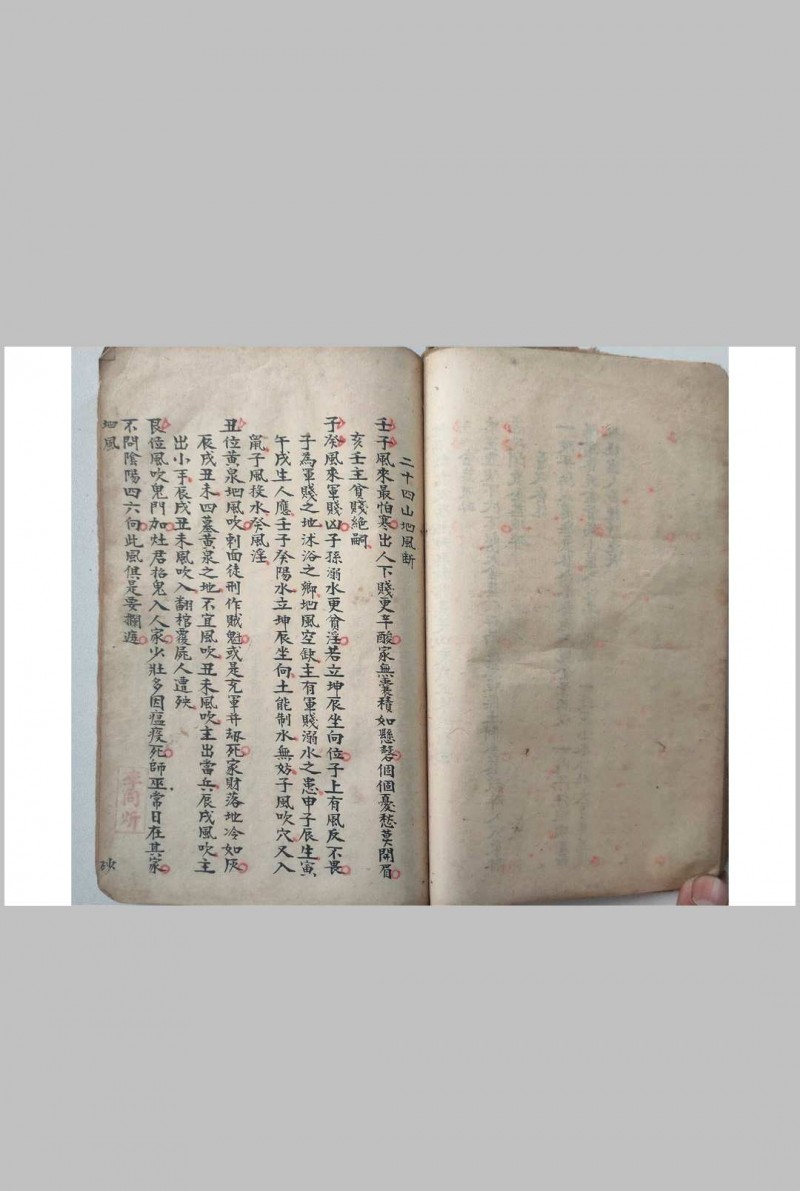 二十四山地風断
壬子風來最怕寒出人下賤更辛酸家無囊積如懸磬個個憂愁莫開眉
亥壬主貧賤絕嗣
子癸風來軍賤凶子孫溺水更貧淫若立坤辰坐向位子上有風反不畏
子為軍賤之地沐浴之鄉地風空缺主有軍賤溺水之患申子辰生寅
午戌生人應壬子癸陽水立坤辰坐向土能制水無妨子風吹穴又入
鼠子風投水癸風淫
丑位黃泉地風吹刺面徒刑作賊魁或是充軍并瘟死家財落地冷如灰
辰戌丑未四墓黃泉之地不宜風吹丑未風吹主出當兵辰戌風吹主
出小手辰戌丑未風吹入翻棺覆屍人遭殃
艮位風吹鬼門加灶君招鬼入人家少壯多因瘟疫死師巫常日在其家
不問陰陽四六向此風俱是要攔遮
地風